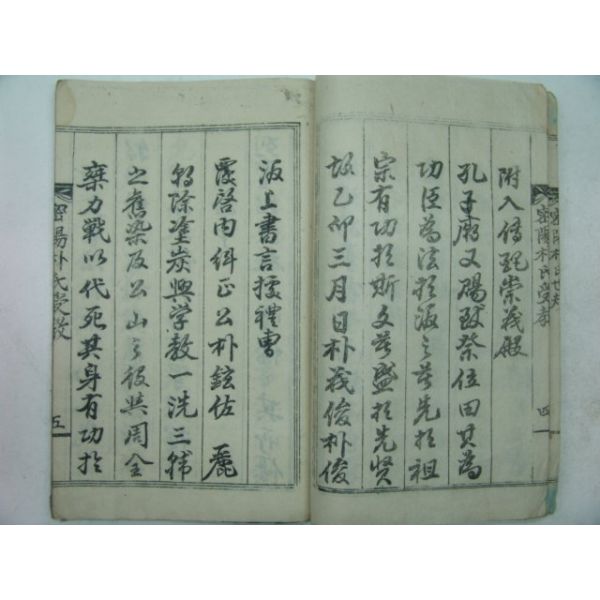 附入傳配崇義殿
孔子廟又賜致祭位田其爲
功臣爲法於海之若先於祖
宗有功於斯文若盛於先賢
故乙卯三月日朴義俊朴俊
密陽朴氏受教
四
海上書言據禮曹
覆啓內糾正公朴鉉佐 麗
朝除塗炭興学教一洗三韓
之舊染及公山之役與周全
棄力戰以代死其身有功於
密陽朴氏受教
五